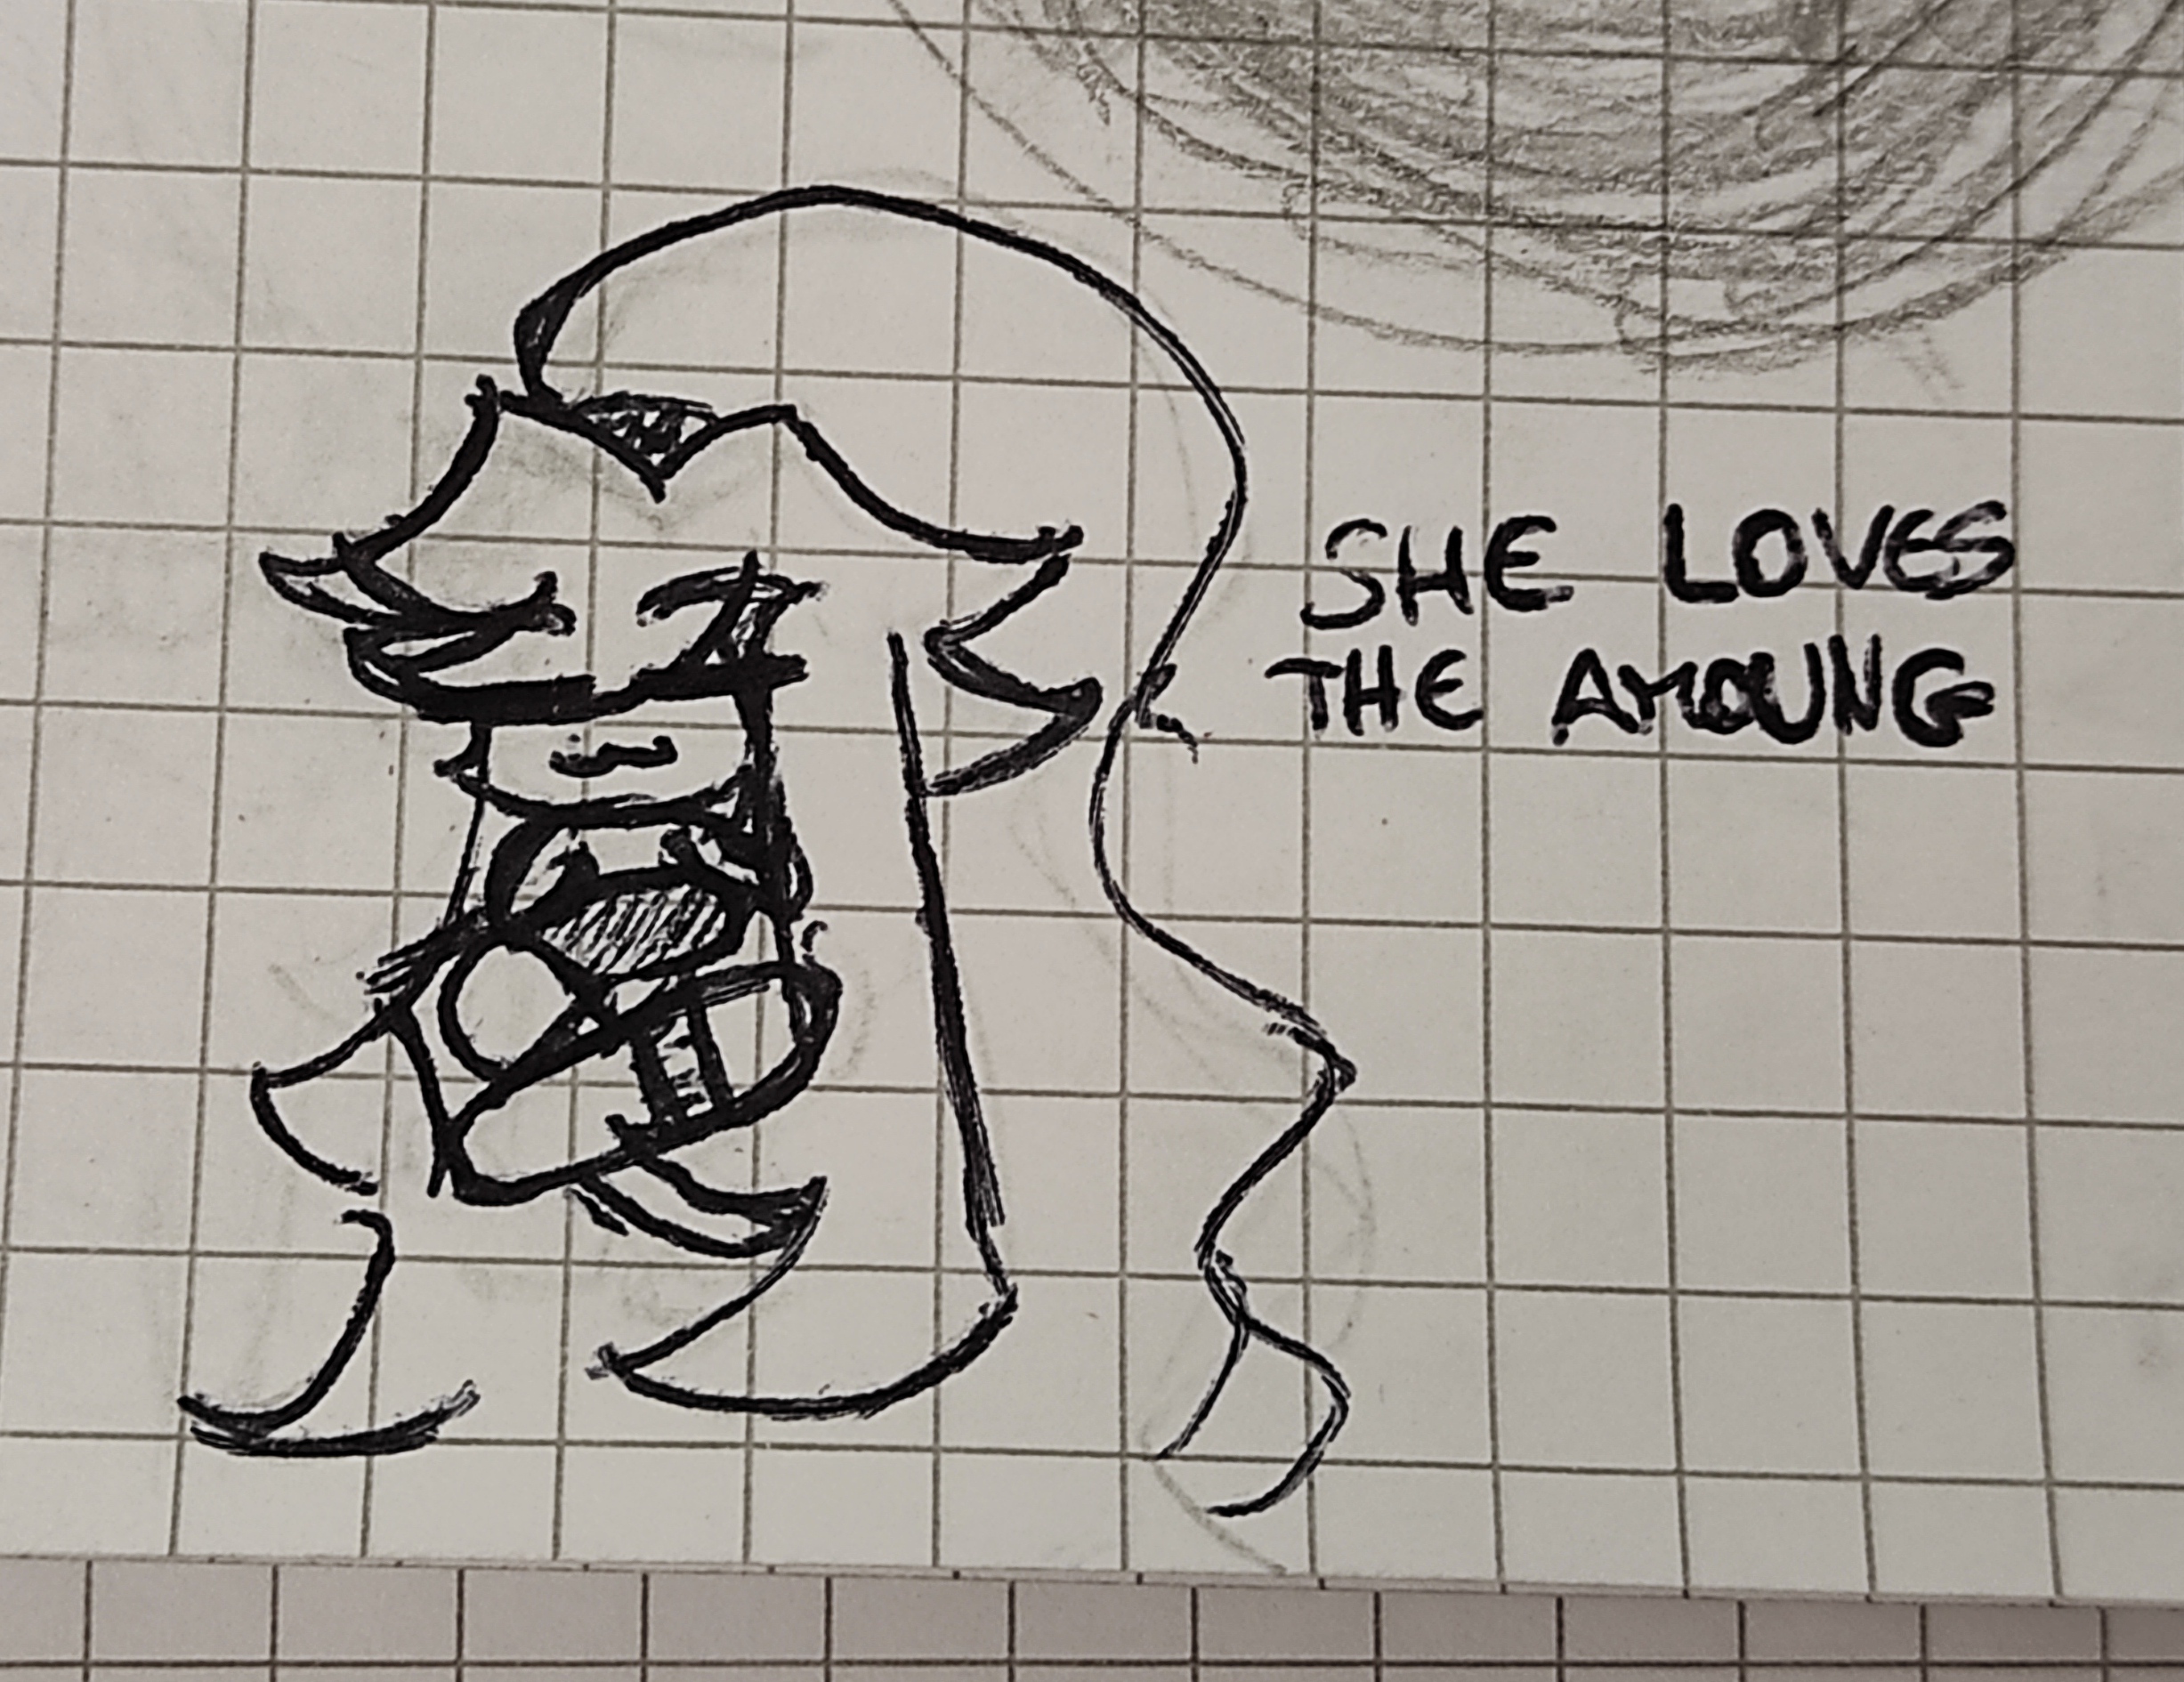 SHE LOVES
THE AMOUNG